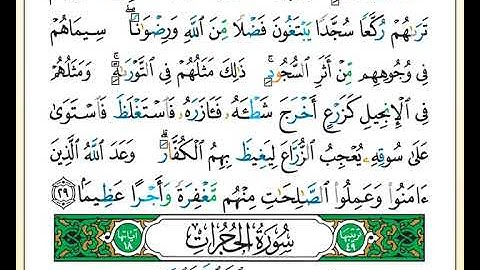 تَرَىٰهُمْ رُكَّعًا سُجَّدًا يَبْتَغُونَ فَضْلًا مِّنَ ٱللَّهِ وَرِضْوَٰنًا ۖ سِيمَاهُمْ
فِى وُجُوهِهِم مِّنْ أَثَرِ ٱلسُّجُودِ ۚ ذَٰلِكَ مَثَلُهُمْ فِى ٱلتَّوْرَىٰةِ ۚ وَمَثَلُهُمْ
فِى ٱلْإِنجِيلِ كَزَرْعٍ أَخْرَجَ شَطْـَٔهُۥ فَـَٔازَرَهُۥ فَٱسْتَغْلَظَ فَٱسْتَوَىٰ
عَلَىٰ سُوقِهِۦ يُعْجِبُ ٱلزُّرَّاعَ لِيَغِيظَ بِهِمُ ٱلْكُفَّارَ ۗ وَعَدَ ٱللَّهُ ٱلَّذِينَ
ءَامَنُوا۟ وَعَمِلُوا۟ ٱلصَّٰلِحَٰتِ مِنْهُم مَّغْفِرَةً وَأَجْرًا عَظِيمًۢا ٢٩
ترتيبها ٤٩ سُورَةُ الحُجُرَاتِ آياتها ١٨